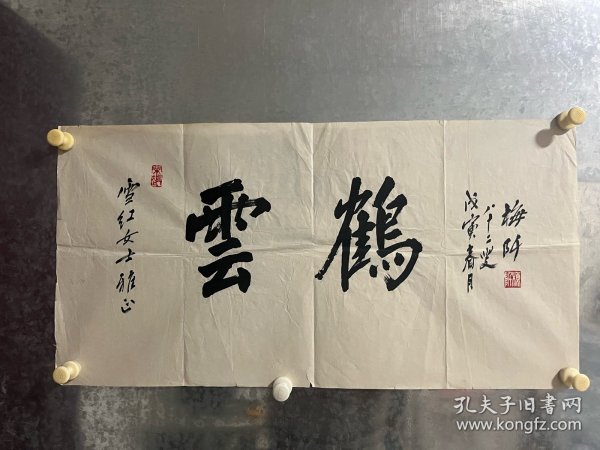 雪红女士雅正
雲鶴
戊寅春月
八十二叟
梅阡
孔夫子旧书网
www.kongfz.com